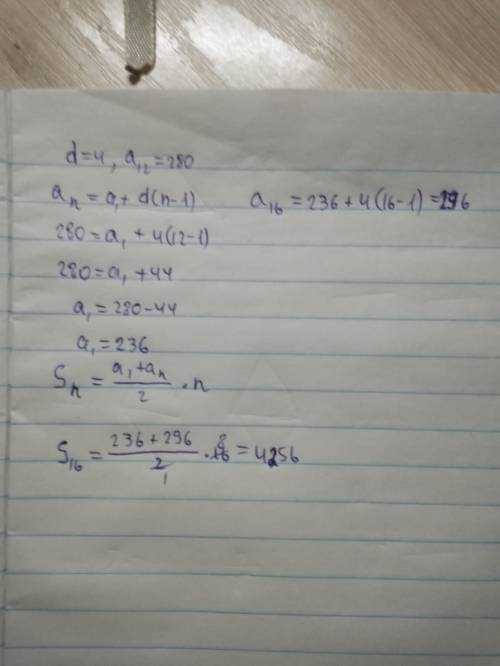 d=4, a₁₂=280
aₙ = a₁+ d(n-1)
a₁₆ = 236+4(16-1)=296
280=a₁ + 4(12-1)
280=a₁ +44
a₁=280-44
a₁=236
Sₙ = (a₁+aₙ)/2 · n
S₁₆ = (236+296)/2 · 16 = 4256